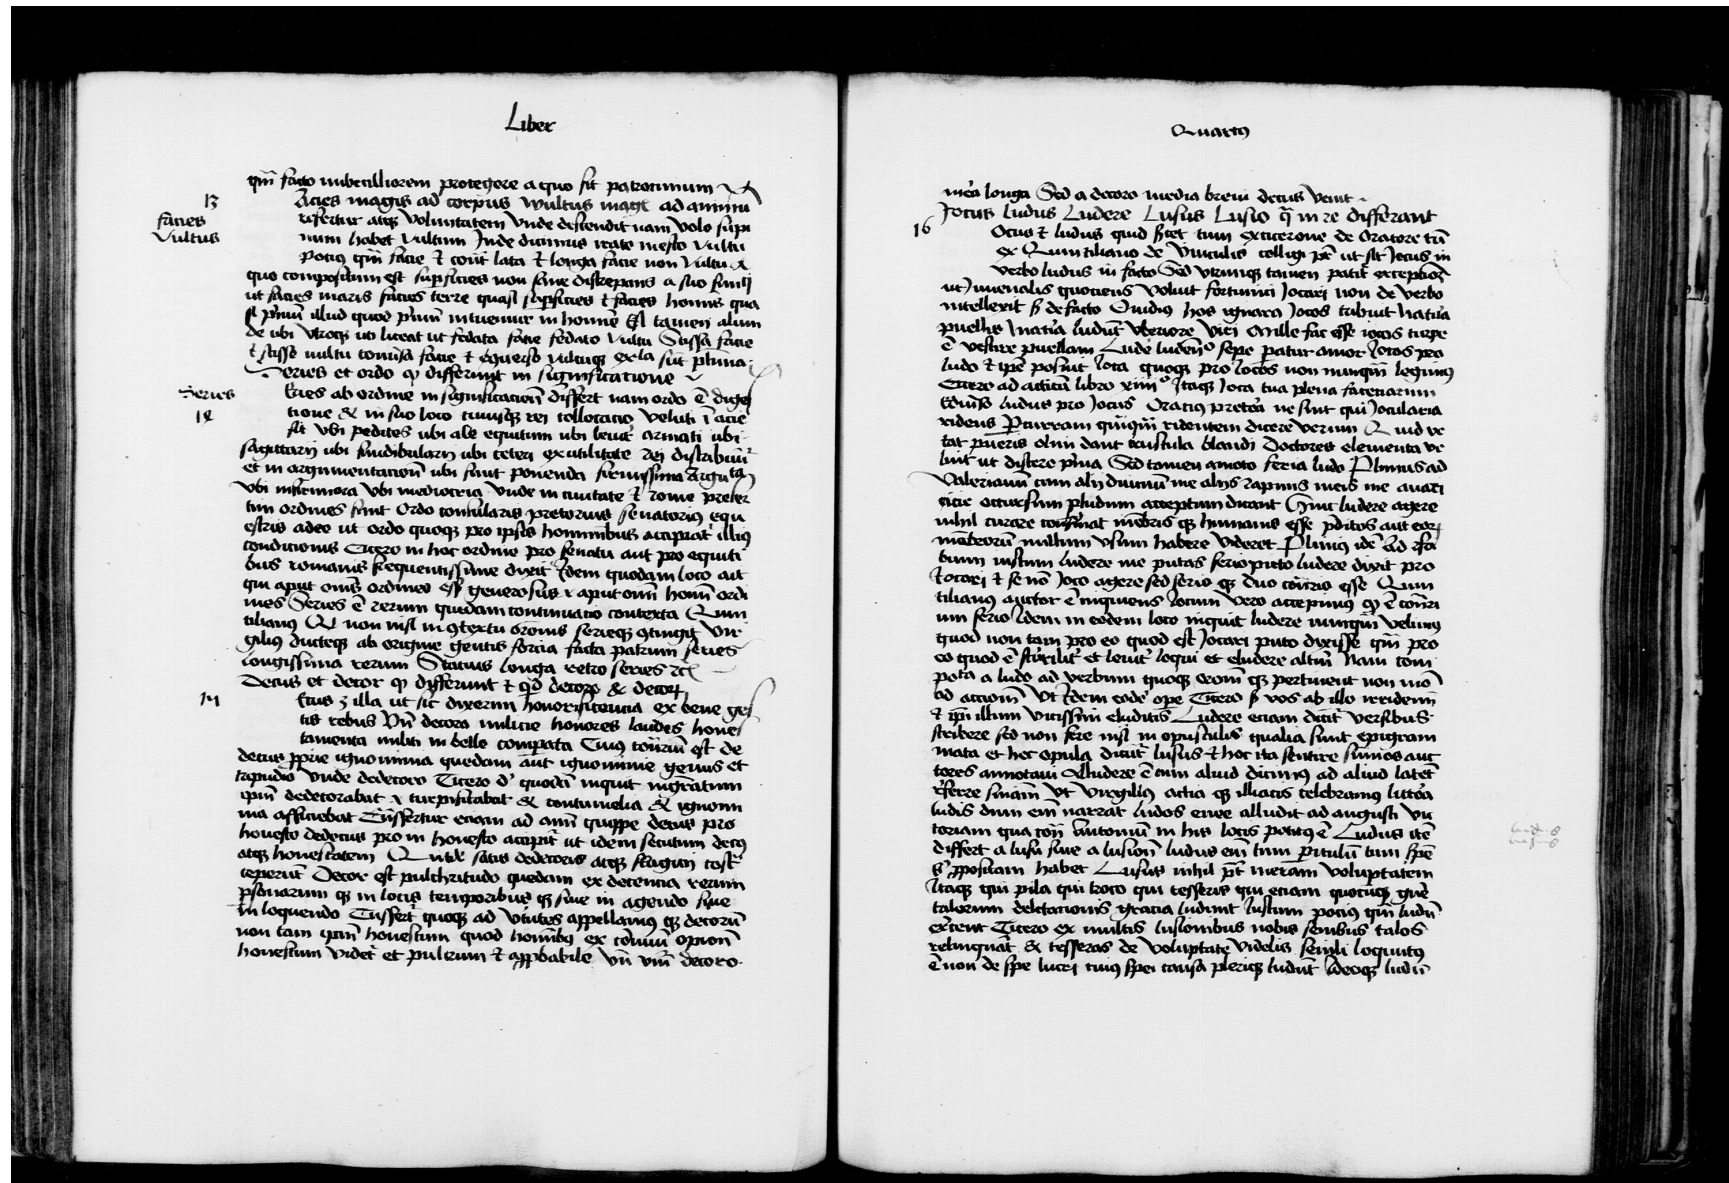 Liber
qm̄ facto imbecilliorem protegere a quo sit patrocinium
13
facies
Vultus
Acies magis ad corpus wultus magꝭ ad animū
refertur atqꝫ voluntatem Vnde descendit nam volo supi
num habet Vultum Inde dicimus irato mesto vultu
pocius qm̄ facie & cont̄ lata & longa facie non Vultu
quo compositum est supficies non sane discrepans a suo simili
ut facies maris facies terre quasi supficies & facies homīs qua
si pͥmū illud quod pͥmū intuemur in homīe Est tamen alium
de ubi vtroqꝫ uti liceat ut fedata facie fedato vultu Scissā facie
& scisso vultu
Series et ordo qꝫ differunt in significatione
Series
Eries ab ordine in significacione differt nam ordo ē diges
tione & in suo loco cuiusqꝫ rei collocatio veluti ī acie
sit vbi pedites ubi ale equitum ubi leuit̄ armati ubi
sagittarij ubi fundibularij ubi ceteri ex utilitate rei distribuūt̄
et in argumentacione ubi sint ponenda firmissima Argumta
vbi infirmiora vbi mediocria Vnde in ciuitate & rome preter
tim ordines sunt Ordo consularis pretorius senatoriꝰ equ
estris adeo ut ordo quoqꝫ pro ipsis hominibus accipiat̄ illiꝰ
condicionis Cicero in hoc ordine pro senatu aut pro equiti
bus romanis frequentissime dixit Idem quodam loco ait
qui aput om̄s ordines esset generosus & aput om̄ hom̄ ordi
nes Series ē rerum quedam continuatio contexta Quin
tilianus Qd non nisi in ꝯtextu oronis serieqꝫ ꝯtingit Vir
gilius ductaqꝫ ab origine gentis forcia facta patrum series
longissima rerum Statius longa retro series rc̄
Decus et decor qꝫ differunt & qd decoro & decorꝭ
14
Ecus ꝫ illa ut sic dixerim honorificencia ex bene ges
tis rebus Vn̄ decora milicie honores laudes hone
tamenta militi in bello comparata Cuius cont̄riū est de
decus pprie ignominia quedam aut ignominie genus et
repudio Vnde dedecoro Cicero d' quodā inquit nigratum
ipm̄ dedecorabat & turpificabat & contumelia & ignomi
nia afficiebat Transfertur eciam ad animū quippe decus pro
honesto dedecus pro in honesto accipit̄ ut idem secutum decꝰ
atqꝫ honestatem Quidē satis dedecoris atqꝫ flagicij
ceperat Decor est pulchritudo quedam ex decencia rerum
psonarum qꝫ in locis temporibus qꝫ siue in agendo siue
in loquendo Transfert̄ quoqꝫ ad v̄tutes appellamus qꝫ decorū
non tam qm̄ honestum quod hominibꝰ ex cōmuni opinione
honestum videt̄ et pulcrum & approbabile vn̄ vnū decoro
Quartus
mea longa Sed a decoro media breui decus venit
Jocus ludus Ludere Lusus Lusio q̄ in re differant
16
Ocus & ludus quid
ex Quintiliano de Vinculis colligi pt̄ ut sit Jocus in
verbo ludus in facto Sed vtrunqꝫ tamen patit̄ exceptionē
ut Juuenalis quociens voluit fortuna Jocari non de verbo
intellexit sed de facto Ouidius hos ignara Jocos tribuit natura
puellis Materia ludūt vberiore viri Mille fac esse iocos turpe
ē vestire puellam Lude ludendo sepe paratur amor Jocos pro
ludo & ipē posuit Jota quoqꝫ pro Jocos non nunqm̄ legimus
Cicero ad atticū libro xiiijº Itaqꝫ Joca tua plena faceciarum
Ediuerso ludus pro Jocus Oracius preterea ne sint qui Jocularia
ridens Percurram quinqm̄ ridentem dicere verum Quid ve
tat pueris olim dant crustula blandi Doctores elementa ve
lint ut discere pͥma Sed tamen amoto seria ludo Plinius ad
Valerianū cum alij diuinū me alijs rapinis meis me auari
cie occursum pludum acceptum dicant Hinc ludere agere
nihil curare
membrorū nullum vsum habere videret Plinius idē
tium iustum ludere me putas serio puto ludere dixit pro
Jocari & se nō Joco agere sed serio qꝫ duo cont̄rio esse Quin
tilianus auctor ē inquiens Jocum vero accepimus qꝫ ē cont̄ri
um serio Idem in eodem loco inquit ludere nunqm̄ velimꝰ
quod non tam pro eo quod est Jocari puto dixisse qm̄ pro
eo quod ē scurilit̄ et leuit̄ loqui et eludere altm̄ Nam com
posita a ludo ad verbum quoqꝫ orom̄ qꝫ pertinent non mō
ad accionē Vt Idem eodē ope Cicero sed vos ab illo irridemini
& ipm̄ illum vicissim eluditis Ludere eciam dicit̄ versibus
scribere sed non fere nisi in opusculis qualia sunt epigram
mata et hec opula dicunt̄ lusus & hoc ita sentire summos auc
tores annotaui Alludere ē cum aliud dicimus ad aliud latent̄
referre sniam Vt Virgilius actia qꝫ illiacis celebramus littora
ludis dum em̄ narrat ludos enee alludit ad augusti vic
toriam qua cont̄ Antonium in his locis potitus ē Ludus itē
differt a lusu siue a lusione ludus em̄
ꝓpositam habet Lusus nihil pt̄ meram voluptatem
Itaqꝫ qui pila qui troco qui tesseris qui eciam quocūqꝫ gn̄e
talorum delectacionis gracia ludunt lusum pocius qm̄ ludū
exercent Cicero ex multis lusionibus nobis senibus talos
relinquāt & tesseras de voluptate videlicet senili loquitur
ē non de spe lucri cuius spei causa pleriqꝫ ludūt Adeoqꝫ ludū